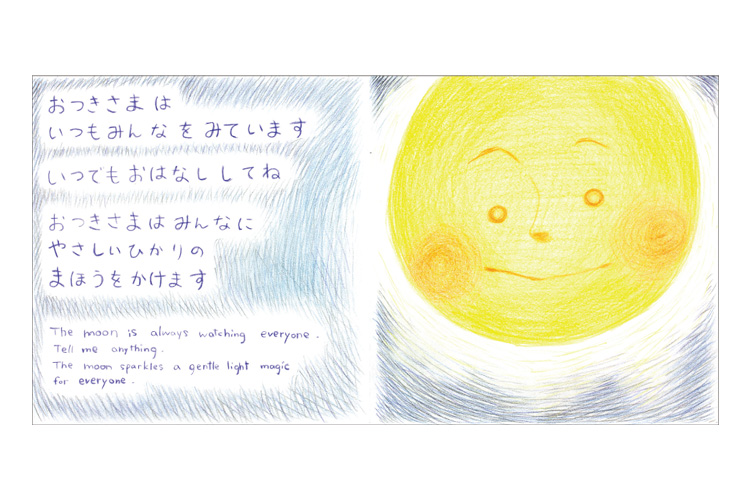 おつきさまは
いつもみんなをみています
いつでもおはなししてね
おつきさまはみんなに
やさしいひかりの
まほうをかけます
The moon is always watching everyone.
Tell me anything.
The moon sparkles a gentle light magic
for everyone.